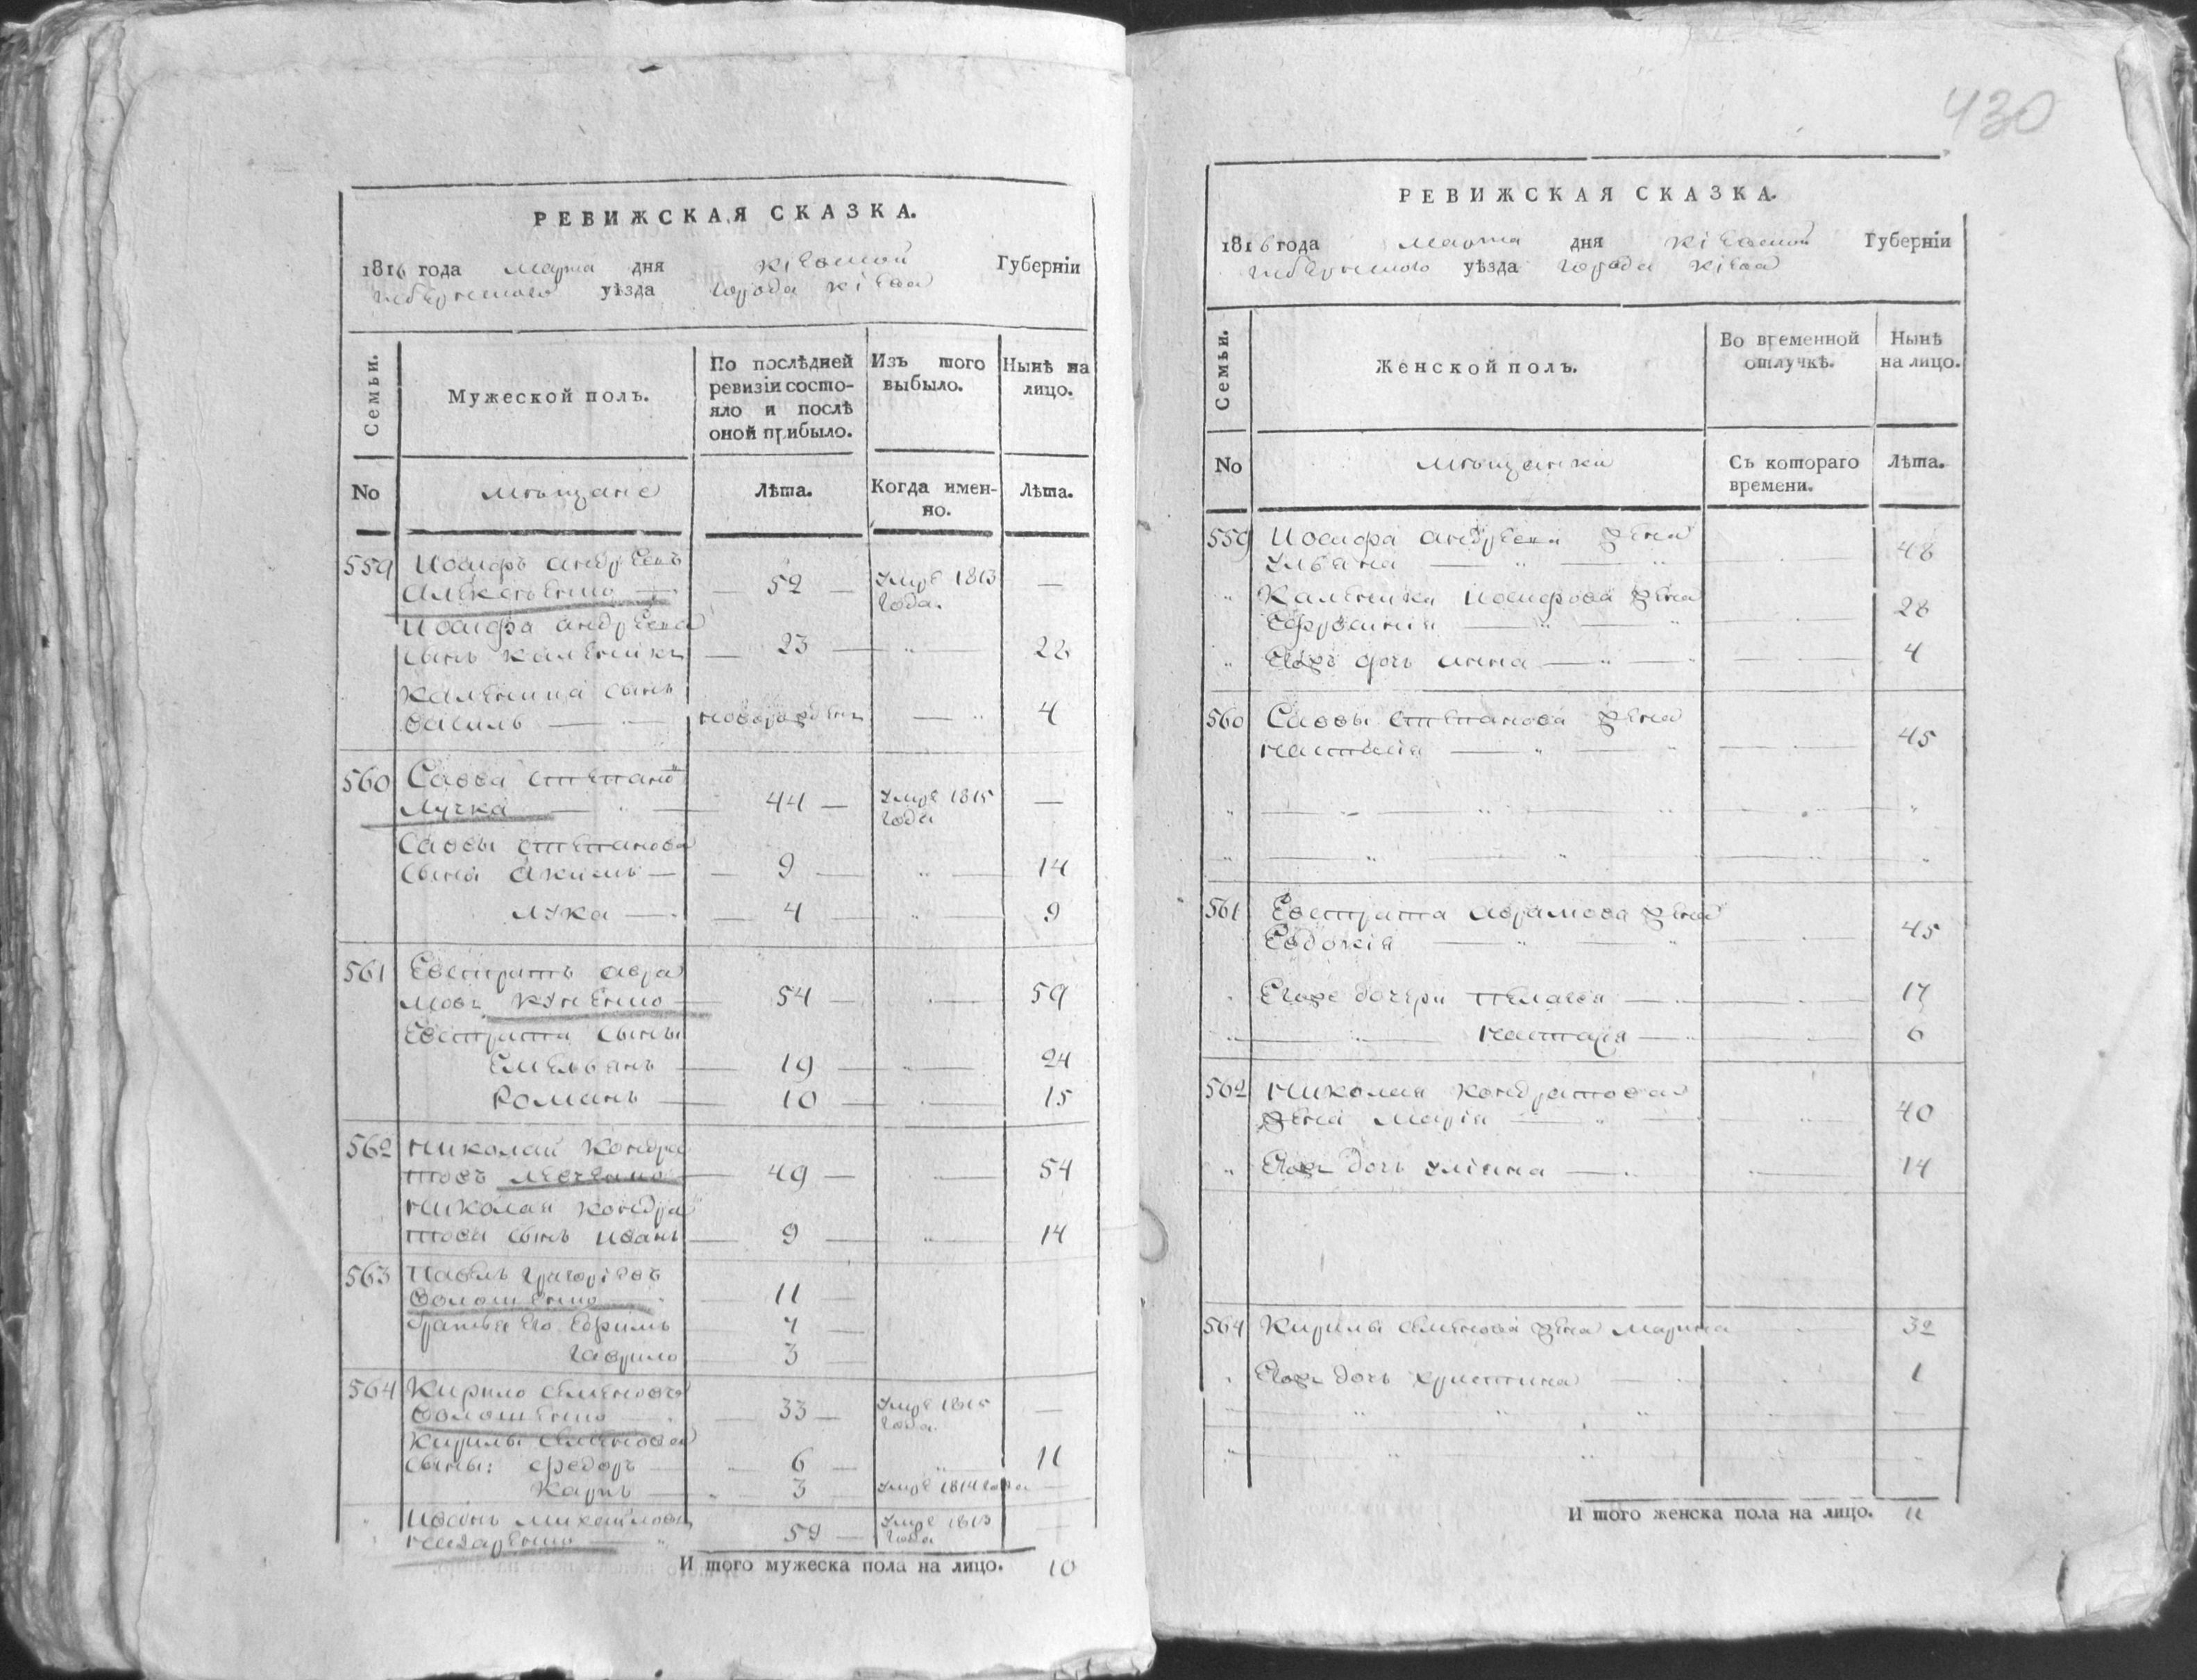 РЕВИЖСКАЯ СКАЗКА.
1816 года марта дня кіевской Губерніи
уѣзда города кіева
Семьи.
Мужеской полъ.
По послѣдней ревизіи состо-
яло и послѣ
оной прибыло.
Изъ того
выбыло.
Нынѣ на
лицо.
No
мѣщане
Лѣта.
Когда имен-
но.
Лѣта.
559 Иосифъ андреевъ
Алексѣенко — 52 — умре 1813 года. —
Иосифа андреева
сынъ каленикъ — 23 — " 28
каленика сынъ
василь — новорожденъ — " 4
560 Савва степановъ
Лучка — " — 44 — умре 1815 года —
Саввы степанова
сына акимъ — 9 — " 14
лука — 4 — " 9
561 Евстратъ авра
мовъ куценко — 54 — 59
Евстрата сыны
Емельянъ — 19 — 24
Романъ — 10 — 15
562 николай кондра
товъ — 49 — 54
николая кондра
това сынъ иванъ — 9 — " 14
563 Павелъ григоріевъ
волошенко — 11 —
братья его ефимъ 7 —
гаврило 3 —
564 Кирило семеновъ
волошенко — 33 — умре 1815 года. —
Кирилы семенова
сыны: федоръ — 6 — " 11
карпъ — 3 — умре 1814 года —
иванъ михайловъ
назаренко — " 59 — умре 1813 года —
И того мужеска пола на лицо. 10
430
РЕВИЖСКАЯ СКАЗКА.
1816 года марта дня кіевской Губерніи
уѣзда города кіева
Семьи.
Женской полъ.
Во временной
отлучкѣ.
Нынѣ
на лицо.
No
мѣщанки
Съ котораго
времени.
Лѣта.
559 Иосифа андреева жена
ульяна — " — " 48
" Каленика иосифова жена
Ефросинія — " — " 28
" Егожъ дочь анна — " — 4
560 Саввы степанова жена
настасія — " — " 45
561 Евстрата аврамова жена
Евдокія — " — " 45
" Егоже дочери пелагея — 17
настасія — 6
562 николая кондратова
жена марія — " — 40
" Егожъ дочь уліяна — 14
564 Кирилы семенова жена марина 32
" Егожъ дочь христина — 1
И того женска пола на лицо. 11